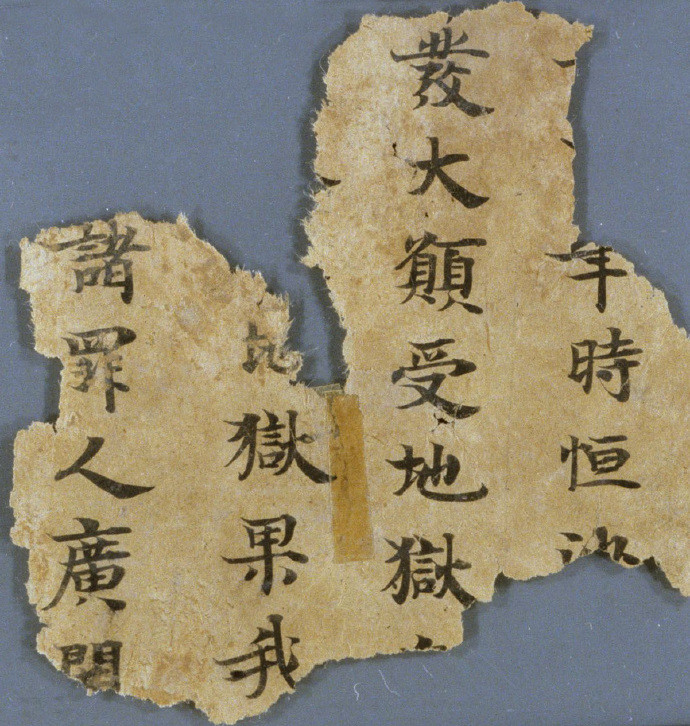 年時恒沙
發大願受地獄
地獄果我
諸罪人廣開